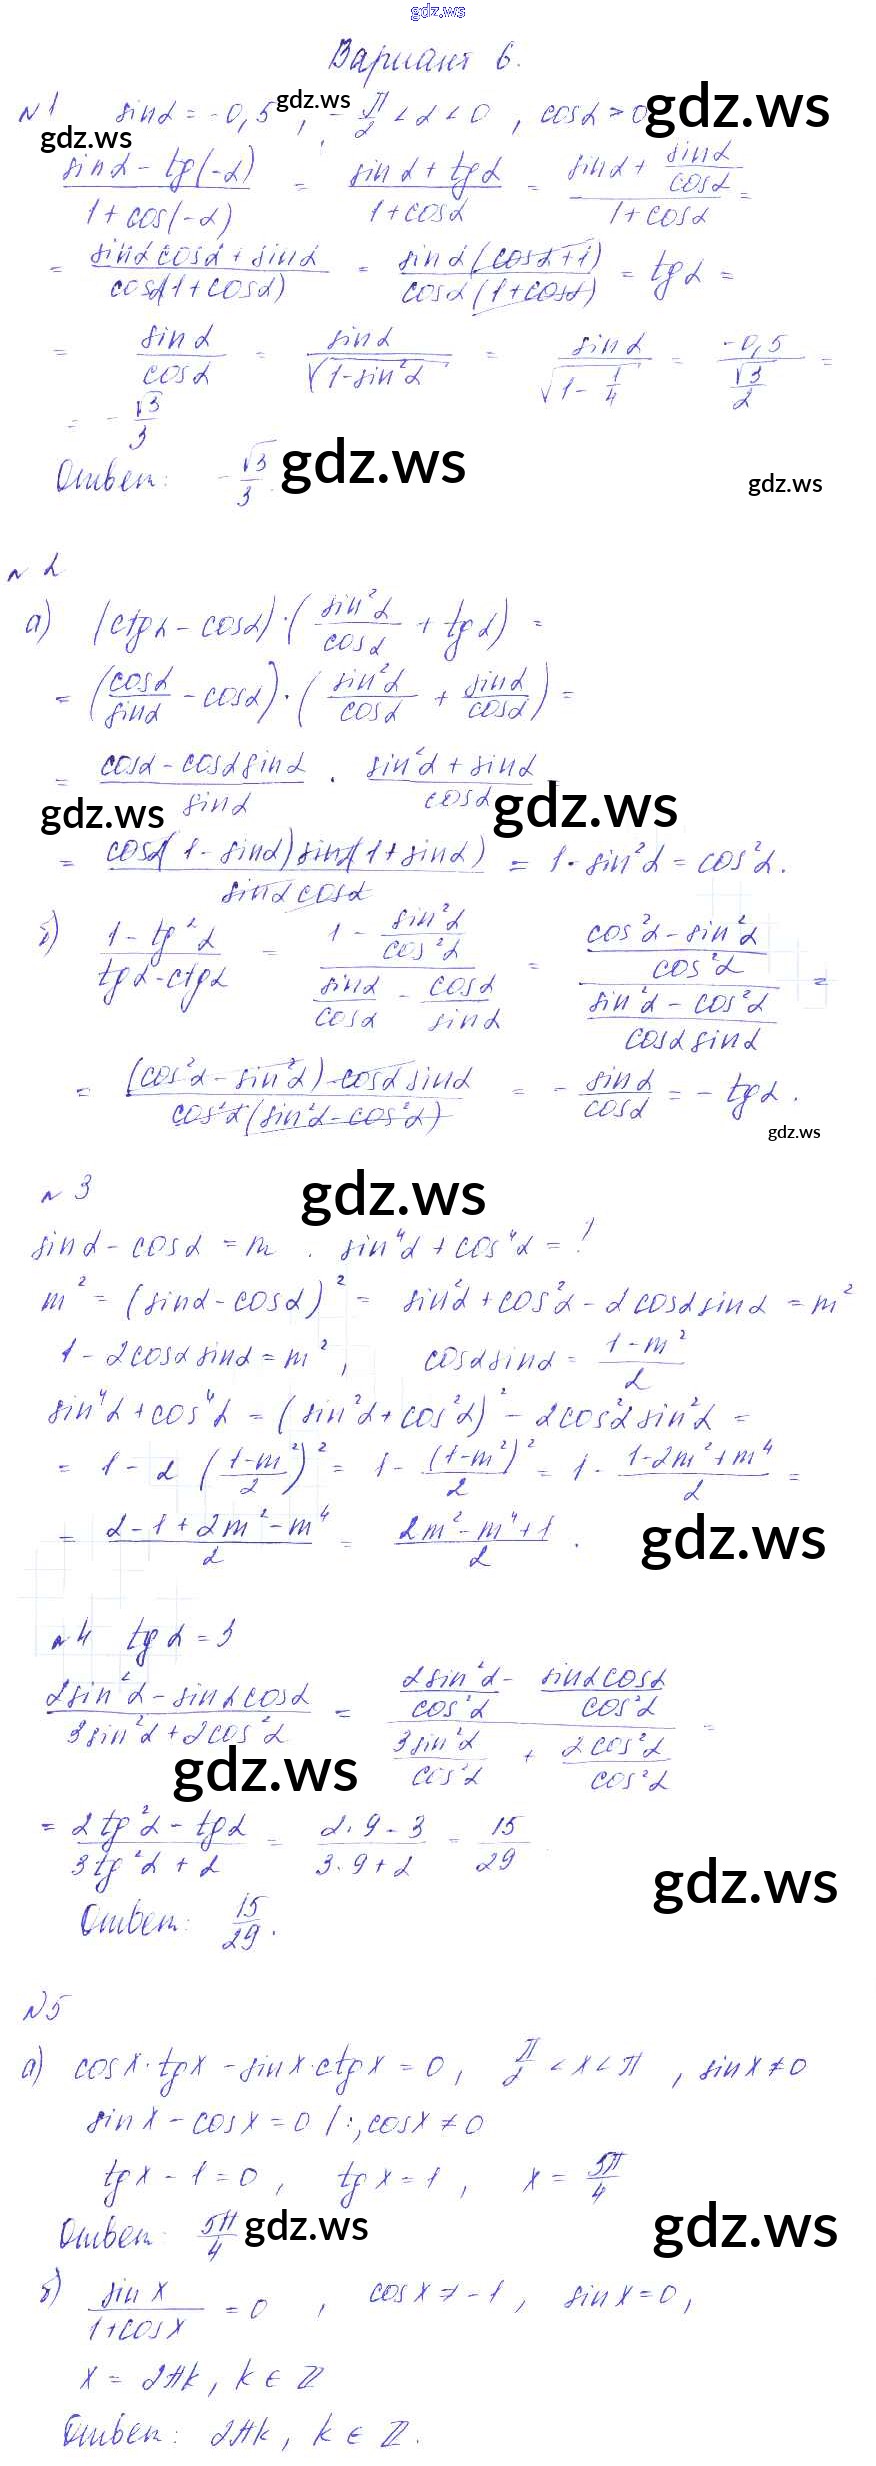 gdz.ws
Вариант 6.
№1 sinα = -0,5, -π/2 < α < 0, cosα > 0
gdz.ws gdz.ws gdz.ws
(sinα - tg(-α))/(1 + cos(-α)) = (sinα + tgα)/(1 + cosα) = (sinα + sinα/cosα)/(1 + cosα) =
= (sinα cosα + sinα)/(cosα(1 + cosα)) = (sinα(cosα + 1))/(cosα(1 + cosα)) = tgα =
= sinα/cosα = sinα/√(1 - sin²α) = sinα/√(1 - 1/4) = -0,5/(√3/2) =
= -√3/3
Ответ: -√3/3.
gdz.ws gdz.ws
№2
а) (ctgα - cosα)·(sin²α/cosα + tgα) =
= (cosα/sinα - cosα)·(sin²α/cosα + sinα/cosα) =
= (cosα - cosα sinα)/sinα · (sin²α + sinα)/cosα
gdz.ws gdz.ws
= (cosα(1 - sinα) sinα(1 + sinα))/(sinα cosα) = 1 - sin²α = cos²α.
б) (1 - tg²α)/(tgα - ctgα) = (1 - sin²α/cos²α)/(sinα/cosα - cosα/sinα) = ((cos²α - sin²α)/cos²α)/((sin²α - cos²α)/(cosα sinα)) =
= ((cos²α - sin²α)·cosα sinα)/(cos²α(sin²α - cos²α)) = -sinα/cosα = -tgα.
gdz.ws
№3
gdz.ws
sinα - cosα = m. sin⁴α + cos⁴α = ?
m² = (sinα - cosα)² = sin²α + cos²α - 2cosα sinα = m²
1 - 2cosα sinα = m², cosα sinα = (1 - m²)/2
sin⁴α + cos⁴α = (sin²α + cos²α)² - 2cos²α sin²α =
= 1 - 2((1 - m²)/2)² = 1 - (1 - m²)²/2 = 1 - (1 - 2m² + m⁴)/2 =
= (2 - 1 + 2m² - m⁴)/2 = (2m² - m⁴ + 1)/2.
gdz.ws
№4 tgα = 3
(2sin²α - sinα cosα)/(3sin²α + 2cos²α) = (2sin²α/cos²α - sinα cosα/cos²α)/(3sin²α/cos²α + 2cos²α/cos²α) =
gdz.ws
= (2tg²α - tgα)/(3tg²α + 2) = (2·9 - 3)/(3·9 + 2) = 15/29
gdz.ws
Ответ: 15/29.
№5
а) cosx·tgx - sinx·ctgx = 0, π/2 < x < π, sinx ≠ 0
sinx - cosx = 0 /:, cosx ≠ 0
tgx - 1 = 0, tgx = 1, x = 5π/4
Ответ: 5π/4
gdz.ws gdz.ws
б) sinx/(1 + cosx) = 0, cosx ≠ -1, sinx = 0,
x = 2πk, k ∈ ℤ
Ответ: 2πk, k ∈ ℤ.